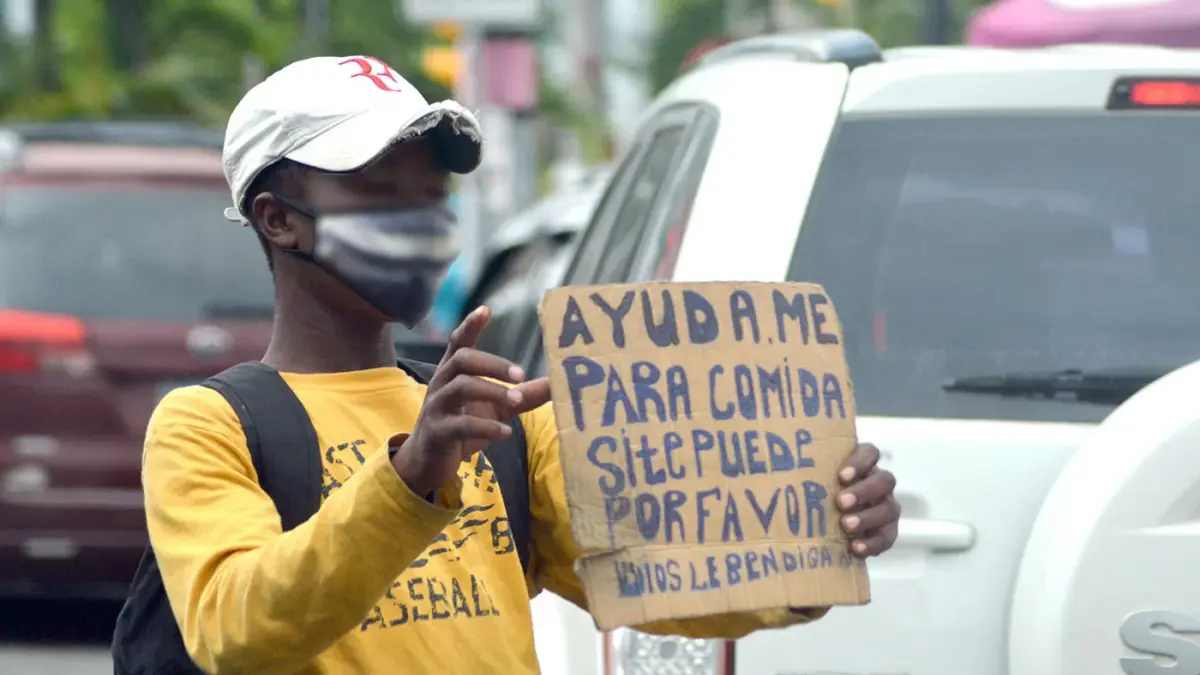 RF
AYUDA.ME
PARA COMIDA
Si te PUEDE
POR FAVOR
DIOS LE BENDIGA
AST
B
BASEBALL
S